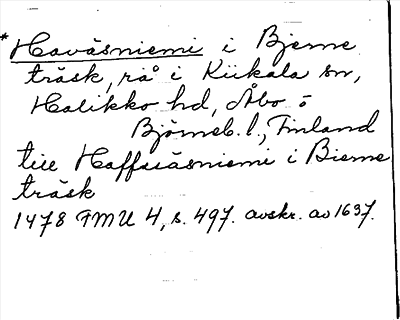 *Haväsniemi i Bjerne
träsk, rå i Kiikala sn,
Halikko hd, Åbo o
Björneb. l., Finland
till Haffuiäsniemi i Bierne
träsk
1478 FMU 4, s. 497. avskr. av 1637.